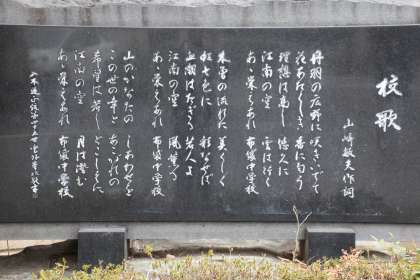 校歌
山崎敏夫作詞
丹羽の広野に 咲きいでて
花あたらしき 香に匂う
理想は高し 悠久に
江南の空 雲は行く
あゝ栄えあれ 布袋中学校
木曽の流れに 美しく
虹七色に
血潮はたぎる 若人よ
江南の空 風薫る
あゝ栄えあれ 布袋中学校
山のかなたの しあわせを
この世の幸と あこがれの
希望は若し
江南の空 月は澄む
あゝ栄えあれ 布袋中学校